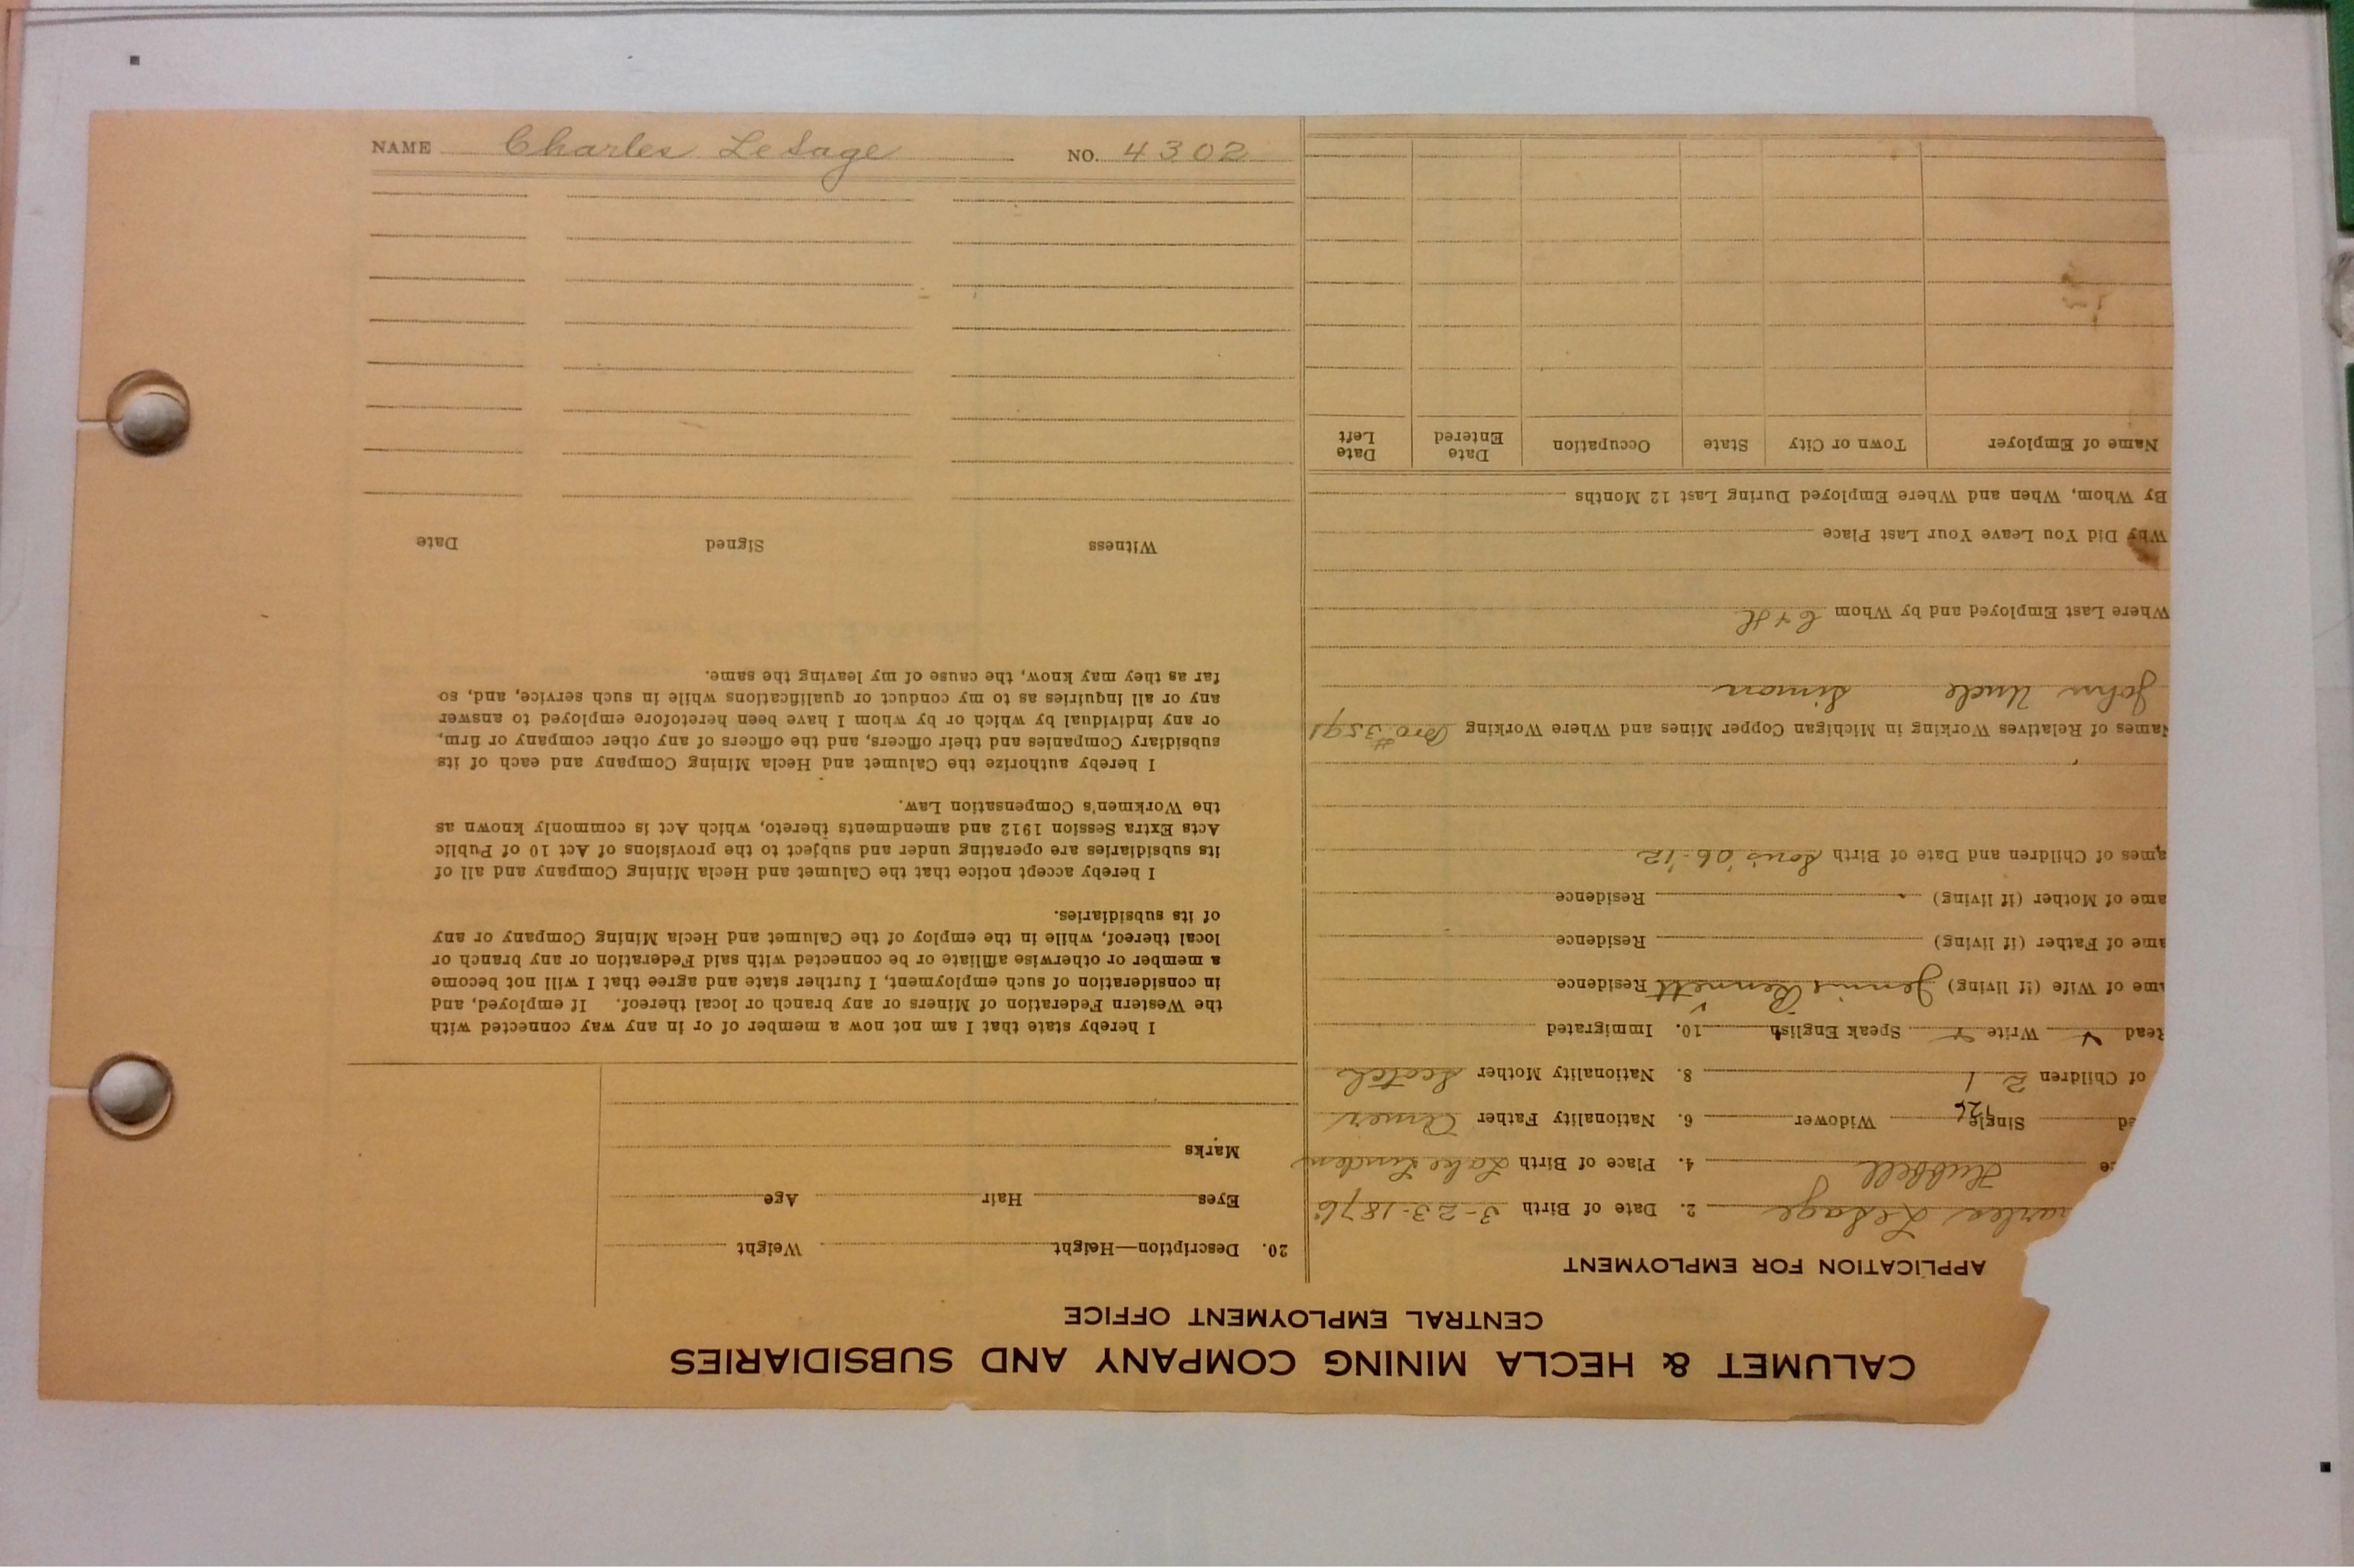 NAME Charles LeSage NO. 4302
CALUMET & HECLA MINING COMPANY AND SUBSIDIARIES
CENTRAL EMPLOYMENT OFFICE
APPLICATION FOR EMPLOYMENT
arles LeSage 2. Date of Birth 3-23-1876
ce Hubbell 4. Place of Birth Lake Linden
ed Single Widower 6. Nationality Father Amer
of Children 2 1 8. Nationality Mother Scotch
Read Write Speak English 10. Immigrated
ame of Wife (if living) Jennie Bennett Residence
ame of Father (if living) Residence
ame of Mother (if living) Residence
ames of Children and Date of Birth Sons '06-'12
Names of Relatives Working in Michigan Copper Mines and Where Working Bro #3591
John Uncle Simon
Where Last Employed and by Whom C+H
Why Did You Leave Your Last Place
By Whom, When and Where Employed During Last 12 Months
Name of Employer Town or City State Occupation Date Entered Date Left
20. Description—Height Weight
Eyes Hair Age
Marks
I hereby state that I am not now a member of or in any way connected with
the Western Federation of Miners or any branch or local thereof. If employed, and
in consideration of such employment, I further state and agree that I will not become
a member or otherwise affiliate or be connected with said Federation or any branch or
local thereof, while in the employ of the Calumet and Hecla Mining Company or any
of its subsidiaries.
I hereby accept notice that the Calumet and Hecla Mining Company and all of
its subsidiaries are operating under and subject to the provisions of Act 10 of Public
Acts Extra Session 1912 and amendments thereto, which Act is commonly known as
the Workmen's Compensation Law.
I hereby authorize the Calumet and Hecla Mining Company and each of its
subsidiary Companies and their officers, and the officers of any other company or firm,
or any individual by which or by whom I have been heretofore employed to answer
any or all inquiries as to my conduct or qualifications while in such service, and, so
far as they may know, the cause of my leaving the same.
Witness Signed Date